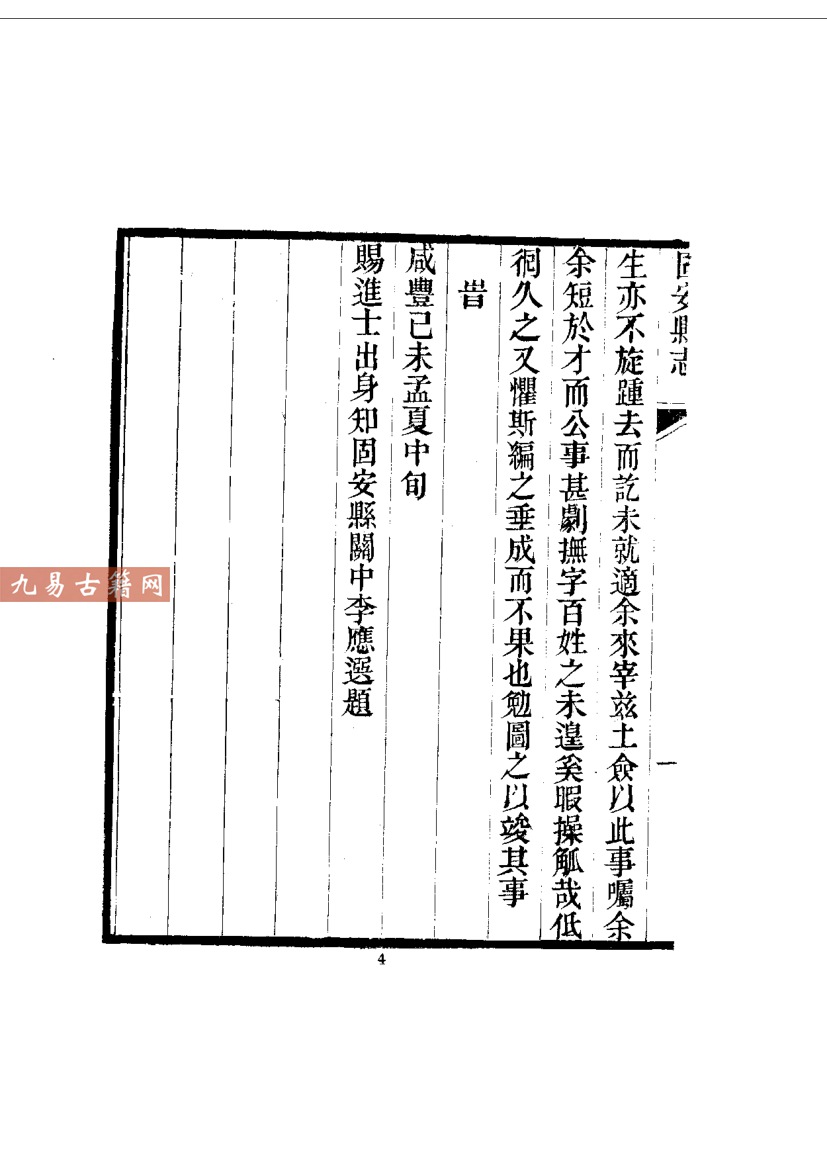 固安縣志
一
生亦不旋踵去而訖未就適余來宰兹土僉以此事囑余
余短於才而公事甚劇撫字百姓之未遑奚暇操觚哉低
徊久之又懼斯編之垂成而不果也勉圖之以竣其事
旹
咸豐己未孟夏中旬
賜進士出身知固安縣關中李應選題
九易古籍网
4